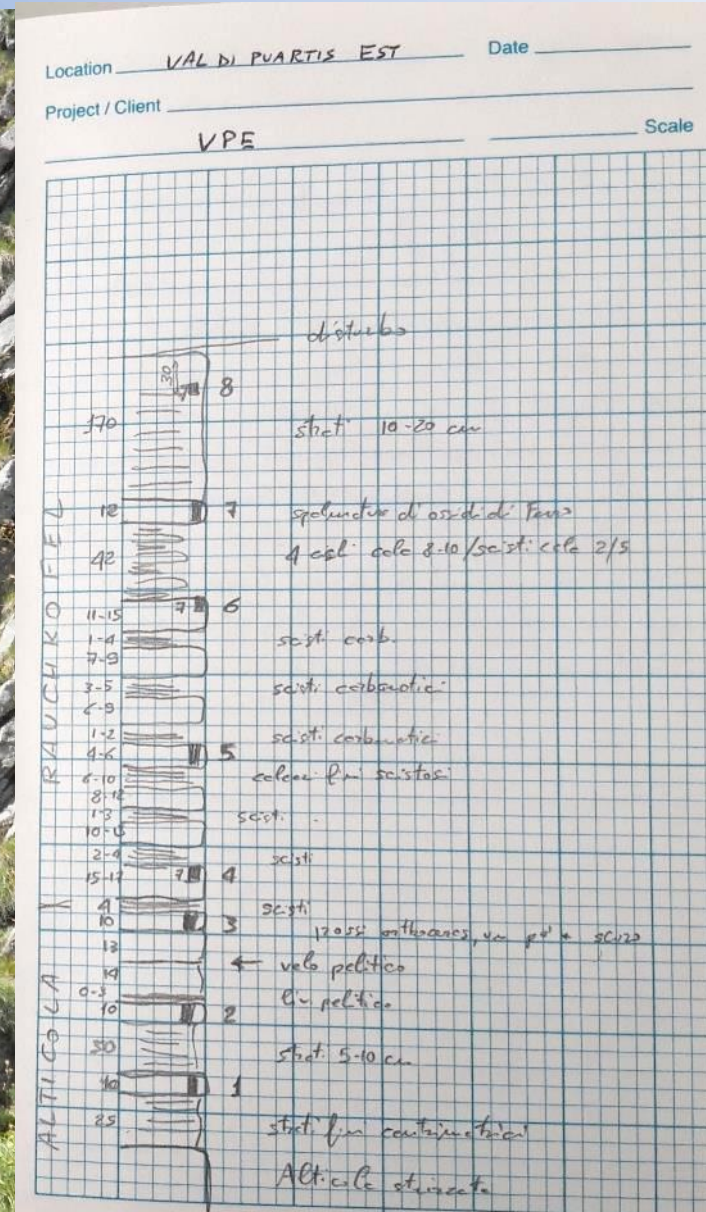 Location VAL DI PUARTIS EST Date
Project / Client
VPE Scale
disturbo
30
7 8
170 strati 10-20 cm
12 7 spalmature d'ossidi di Ferro
42 4 calc 8-10 / scisti calc 2/5
11-15 7 6
1-4 scisti carb.
7-9
3-5 scisti carbonatici
6-9
1-2 scisti carbonatici
4-6 5
6-10 calcari fini scistosi
8-12
1-3 scisti
10-15
2-4 scisti
15-17 7 4
4 scisti
10 3 grossi orthoceras, un po' + scuro
13
← velo pelitico
14
0-3 liv pelitico
10 2
50 strati 5-10 cm
10 1
25 strati fini centimetrici
Alticola
RAUCHKOFEL
ALTICOLA